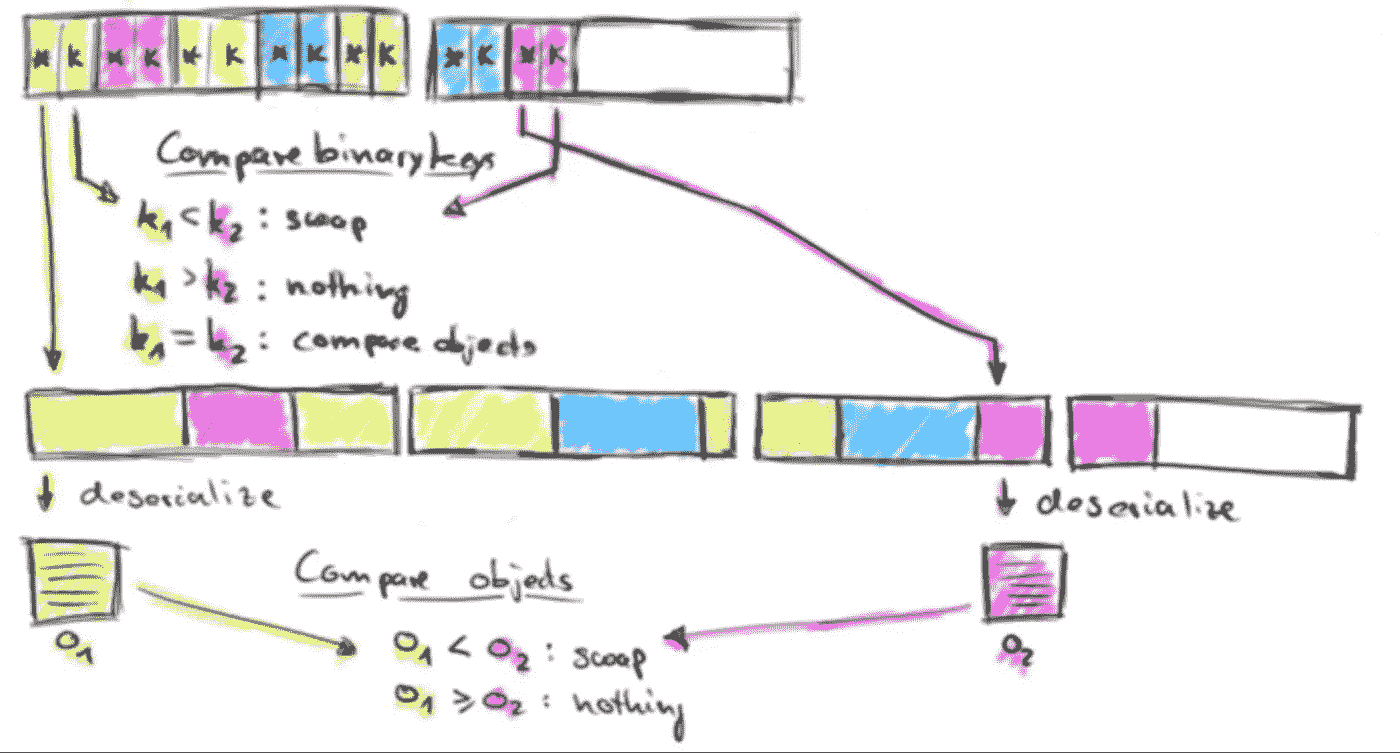 * k * k * k * k * k * k * k
Compare binary keys
k1 < k2 : swap
k1 > k2 : nothing
k1 = k2 : compare objects
deserialize deserialize
Compare objects
o1 o2
o1 < o2 : swap
o1 ≥ o2 : nothing